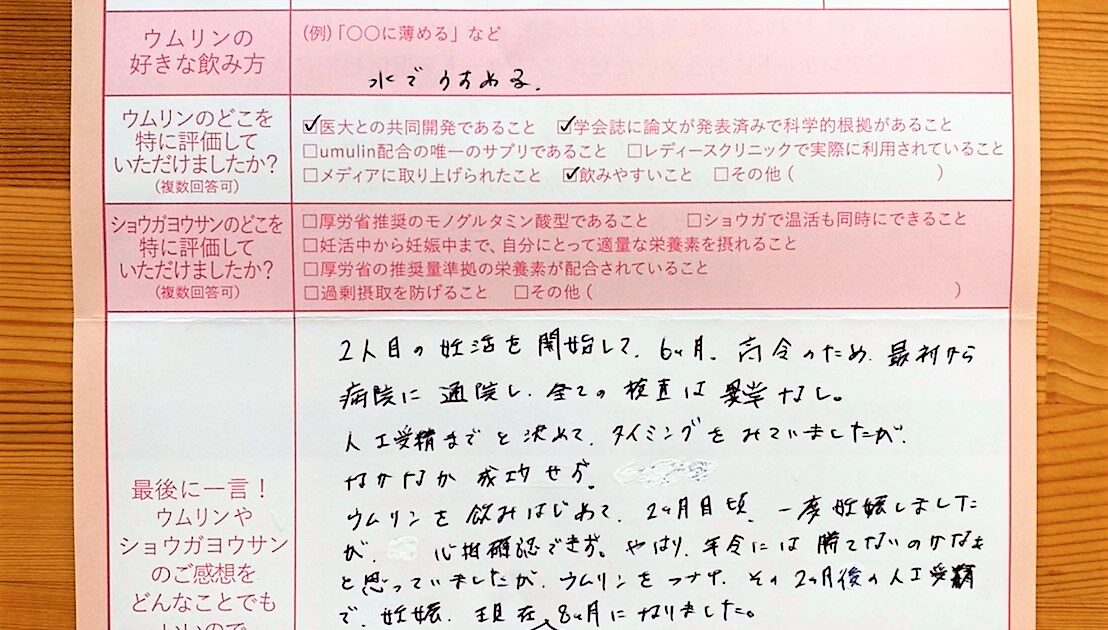 ウムリンの
好きな飲み方
(例)「○○に薄める」など
水でうすめる.
ウムリンのどこを
特に評価して
いただけましたか?
(複数回答可)
☑医大との共同開発であること ☑学会誌に論文が発表済みで科学的根拠があること
□umulin配合の唯一のサプリであること □レディースクリニックで実際に利用されていること
□メディアに取り上げられたこと ☑飲みやすいこと □その他 ( )
ショウガヨウサンのどこを
特に評価して
いただけましたか?
(複数回答可)
□厚労省推奨のモノグルタミン酸型であること □ショウガで温活も同時にできること
□妊活中から妊娠中まで、自分にとって適量な栄養素を摂れること
□厚労省の推奨量準拠の栄養素が配合されていること
□過剰摂取を防げること □その他 ( )
最後に一言!
ウムリンや
ショウガヨウサン
のご感想を
どんなことでも
いいので
2人目の妊活を開始して、6ヶ月。高令のため、最初から
病院に通院し、全ての検査は異常なし。
人工受精までと決めて、タイミングをみていましたが、
なかなか成功せず。
ウムリンを飲みはじめて、2ヶ月目頃、一度妊娠しました
が、心拍確認できず。やはり、年令には勝てないのかなぁ
と思っていましたが、ウムリンをつづけ、その2ヶ月後の人工受精
で、妊娠、現在、8ヶ月になりました。